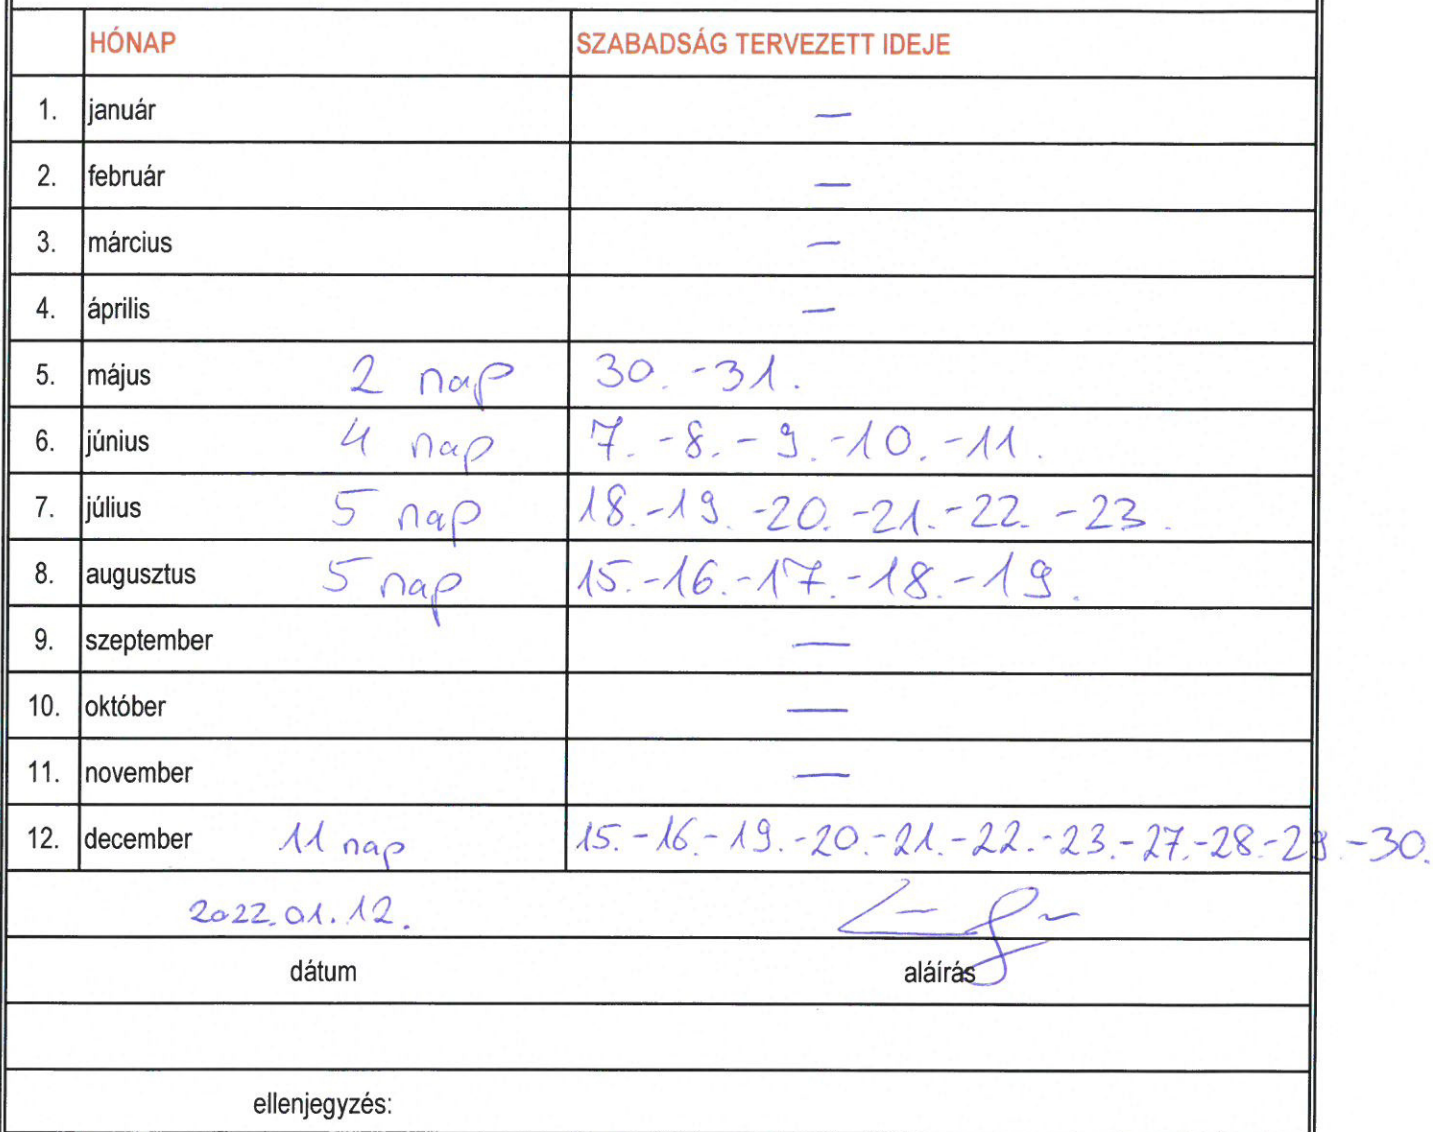 HÓNAP SZABADSÁG TERVEZETT IDEJE
1. január —
2. február —
3. március —
4. április —
5. május 2 nap 30.-31.
6. június 4 nap 7.-8.-9.-10.-11.
7. július 5 nap 18.-19.-20.-21.-22.-23.
8. augusztus 5 nap 15.-16.-17.-18.-19.
9. szeptember —
10. október —
11. november —
12. december 11 nap 15.-16.-19.-20.-21.-22.-23.-27.-28.-29.-30.
2022.01.12.
dátum aláírás
ellenjegyzés: